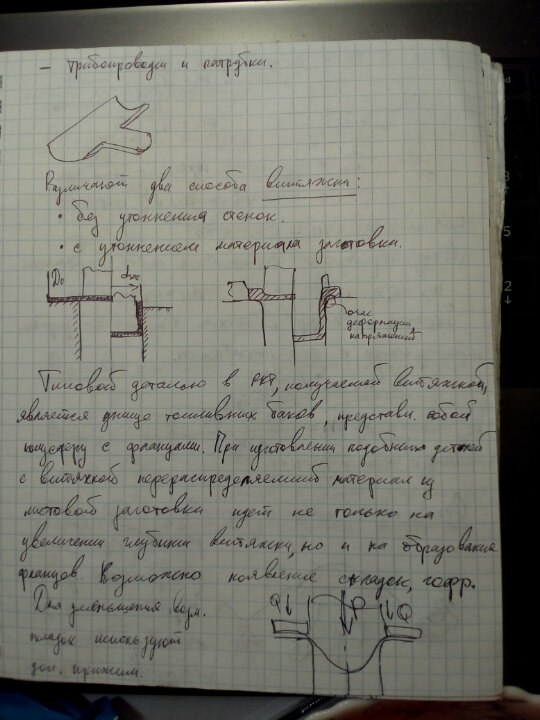 — трубопроводы и патрубки.
Различают два способа вытяжки:
• без утонения стенок.
• с утонением материала заготовки.
D₀
dпк
очаг
деформации,
напряжений
Типовой деталью в РКТ, получаемой вытяжкой,
является днище топливных баков, представл. собой
полусферу с фланцами. При изготовлении подобных деталей
с вытяжкой перераспределяемый материал из
листовой заготовки идет не только на
увеличении глубины вытяжки, но и на образование
фланцев. Возможно появление складок, гофр.
Для уменьшения возм.
складок используют
доп. прижим.
Q
P
Q